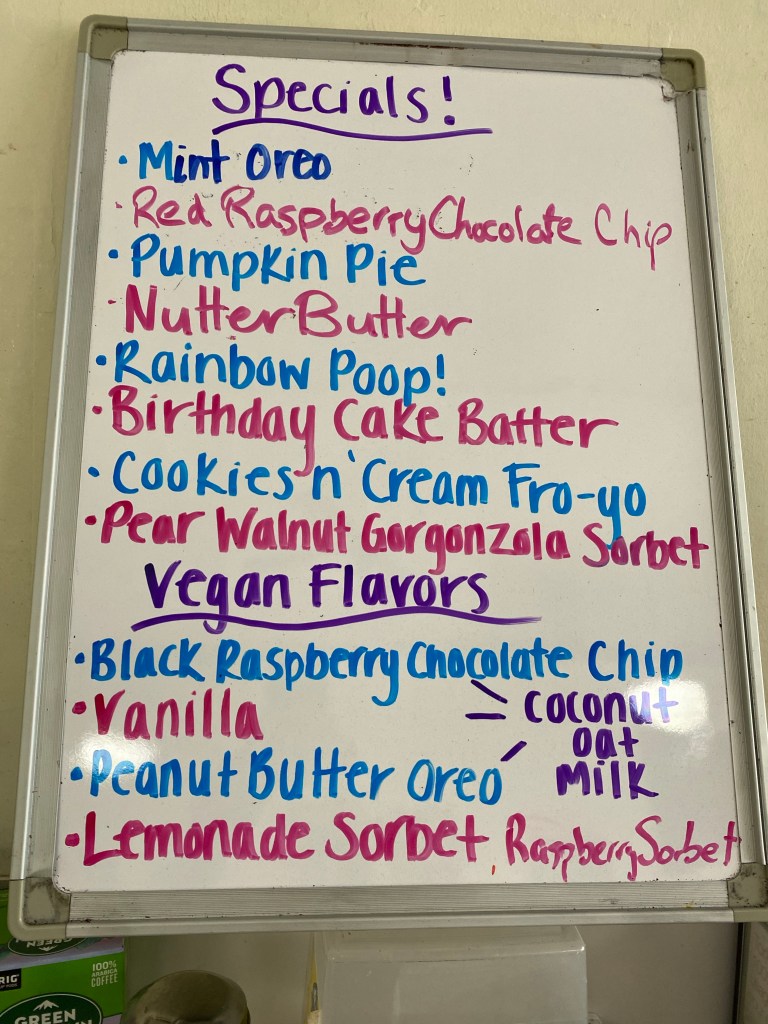 Specials!
• Mint Oreo
• Red Raspberry Chocolate Chip
• Pumpkin Pie
• Nutter Butter
• Rainbow Poop!
• Birthday Cake Batter
• Cookies n' Cream Fro-yo
• Pear Walnut Gorgonzola Sorbet
Vegan Flavors
• Black Raspberry Chocolate Chip
• Vanilla
coconut
oat
milk
• Peanut Butter Oreo
• Lemonade Sorbet Raspberry Sorbet
GREEN
100%
ARABICA
COFFEE
GREEN